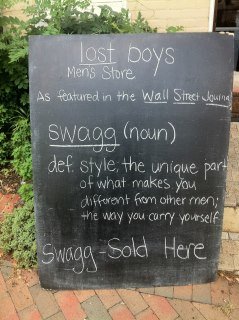 lost boys
Men's Store
As featured in the Wall Street Journal
swagg (noun)
def. style; the unique part
of what makes you
different from other men;
the way you carry yourself
Swagg - Sold Here